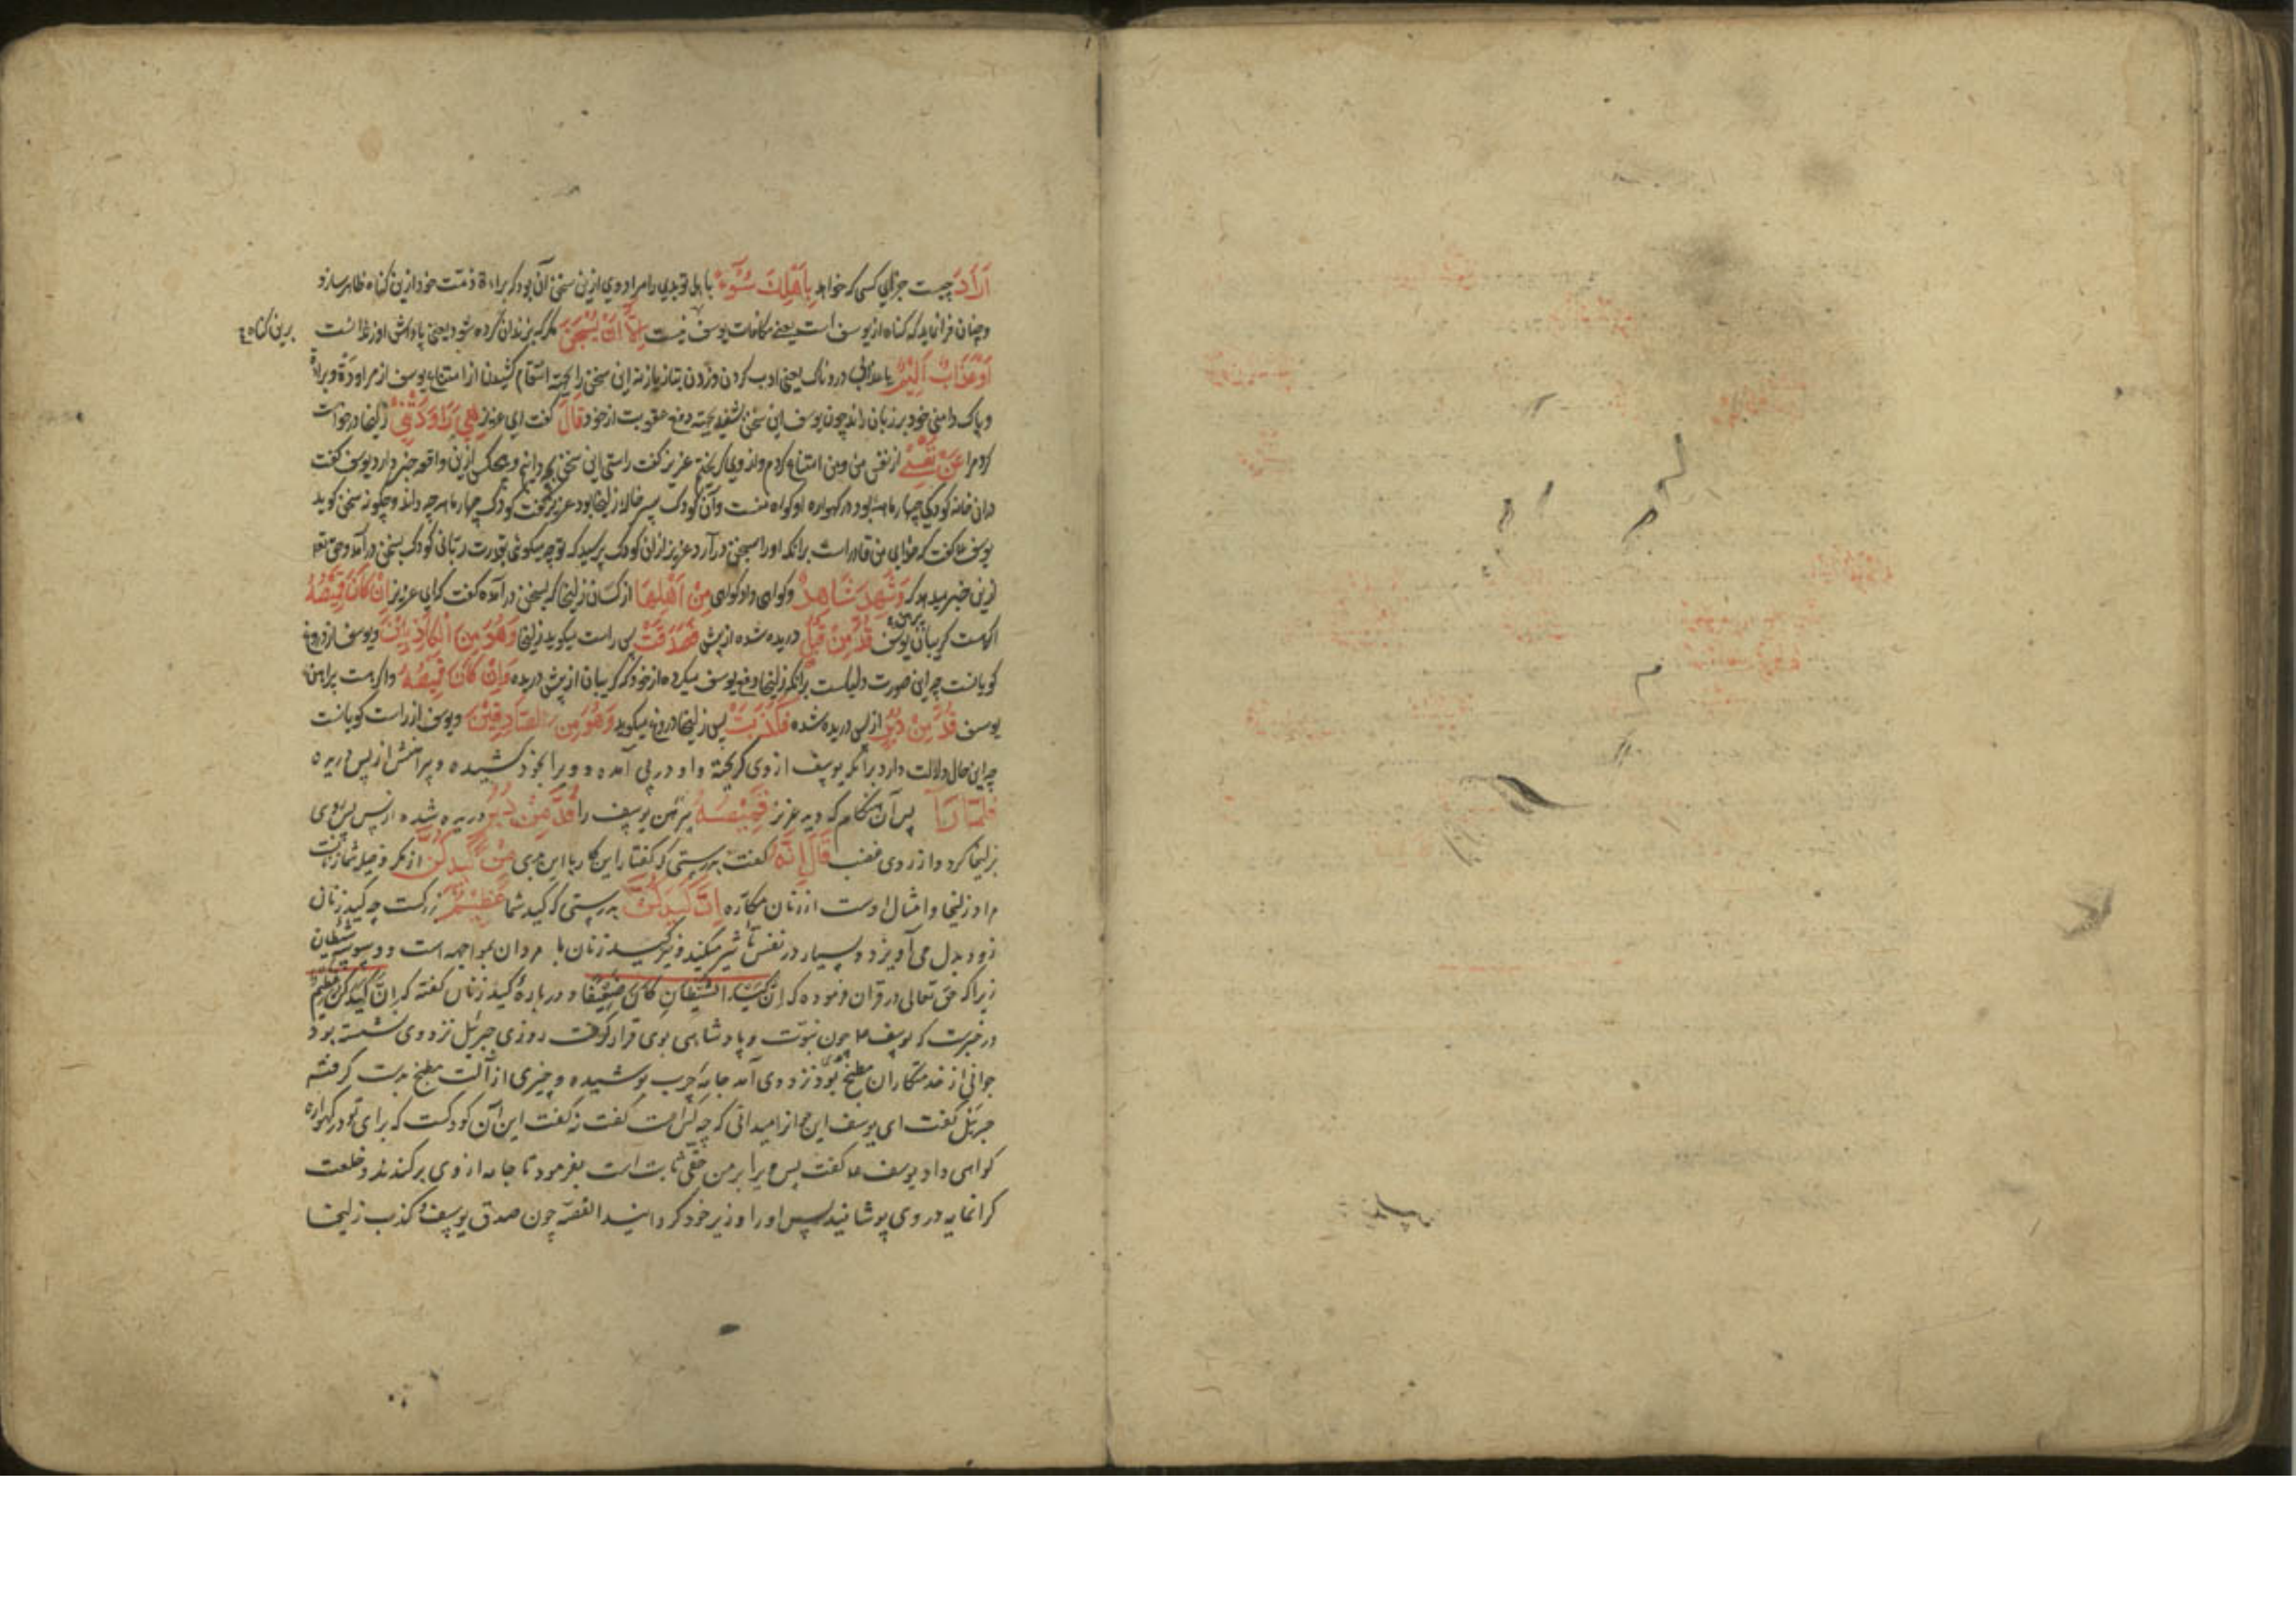 اَرَادَ چیست جزای کسی که خواهد بِاَهْلِكَ سُوٓءً باهل تو بدی را مراد وی ازین سخن آن بود که براءة ذمّت خود ازین گناه ظاهر سازد
و چنان فرا نماید که گناه از یوسف است یعنی مکافات یوسف نیست اِلَّآ اَنْ يُسْجَنَ مگر که بزندان کرده شود یعنی پاداش او زندانست
برین گناه
اَوْ عَذَابٌ اَلِيْمٌ یا عذابی دردناک یعنی ادب کردن و زدن بتازیانه این سخن را بجهة انتقام کشیدن از امتناع یوسف از مراودة و براءة
و پاک دامنی خود بر زبان راند چون یوسف این سخن شنید بجهة دفع عقوبت از خود قَالَ گفت ای عزیز هِيَ رَاوَدَتْنِيْ زلیخا درخواست
کرد مرا عَنْ نَفْسِيْ از نفس من و من امتناع کردم و از وی گریختم عزیز گفت راستی این سخن بچه دانم و هیچکس ازین واقعه خبر ندارد یوسف گفت
دران خانه کودکی چهار ماهه بود در گهواره او گواه منست و آن کودک پسر خاله زلیخا بود عزیز گفت کودک چهار ماهه چه داند و چگونه سخن گوید
یوسف ع گفت که خدای من قادر است برانکه اورا بسخن در آرد عزیز ازان کودک پرسید که تو چه میگوئی بقدرت ربّانی کودک بسخن درآمد و حق تع
ازین خبر میدهد که وَشَهِدَ شَاهِدٌ و گواهی داد گواهی مِنْ اَهْلِهَا از کسان زلیخا که بسخن درآمده گفت که ای عزیز اِنْ كَانَ قَمِيْصُهُ
اگر هست گریبان یوسف قُدَّ مِنْ قُبُلٍ دریده شده از پیش فَصَدَقَتْ پس راست میگوید زلیخا وَهُوَ مِنَ الْكَاذِبِيْنَ و یوسف از دروغ
گویانست چه این صورت دلیلست برانکه زلیخا دفع یوسف میکرده از خود که گریبان از پیش دریده وَاِنْ كَانَ قَمِيْصُهُ و اگر هست پیراهن
یوسف قُدَّ مِنْ دُبُرٍ از پس دریده شده فَكَذَبَتْ پس زلیخا دروغ میگوید وَهُوَ مِنَ الصَّادِقِيْنَ و یوسف از راست گویانست
چه این حال دلالت دارد برانکه یوسف از وی گریخته و او در پی آمده و ویرا بخود کشیده و پیراهنش از پس دریده
فَلَمَّا رَاٰ پس آن هنگام که دید عزیز قَمِيْصَهُ پیرهن یوسف را قُدَّ مِنْ دُبُرٍ دریده شده از پس پس روی
بزلیخا کرد و از روی غضب قَالَ اِنَّهُ گفت بدرستی که گفتار این کار یا این بدی مِنْ كَيْدِكُنَّ از مکر و حیله شما زنانست
مراد زلیخا و امثال اوست از زنان مکّاره اِنَّ كَيْدَكُنَّ بدرستی که کید شما عَظِيْمٌ بزرگست چه کید زنان
زود بدل می آویزد و بسیار در نفس تأثیر میکند و نیز کید زنان با مردان بمواجهه است و وسوسه شیطان
زیرا که حق تعالی در قرآن فرموده که اِنَّ كَيْدَ الشَّيْطَانِ كَانَ ضَعِيْفًا و در باره کید زنان گفته که اِنَّ كَيْدَكُنَّ عَظِيْمٌ
در خبرست که یوسف ع چون نبوّت و پادشاهی بوی قرار گرفت روزی جبرئیل نزد وی نشسته بود
جوانی از خدمتکاران مطبخ بود نزد وی آمد جامه چرب پوشیده و چیزی از آلت مطبخ بدست گرفته
جبرئیل گفت ای یوسف این جوانرا میدانی که چه کس است گفت نه گفت این آن کودکست که برای تو در گهواره
گواهی داد یوسف ع گفت پس ویرا بر من حقی ثابت است بفرمود تا جامه از وی برکندند و خلعت
گرانمایه در وی پوشانید پس اورا وزیر خود گردانید القصّه چون صدق یوسف و کذب زلیخا